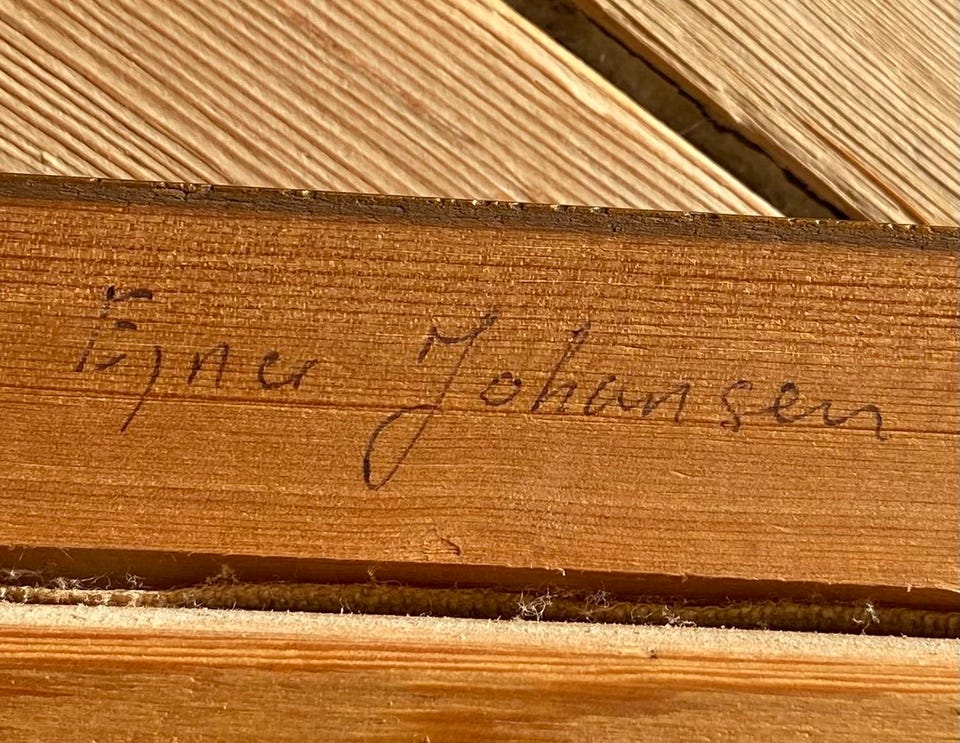 Ejner Johansen